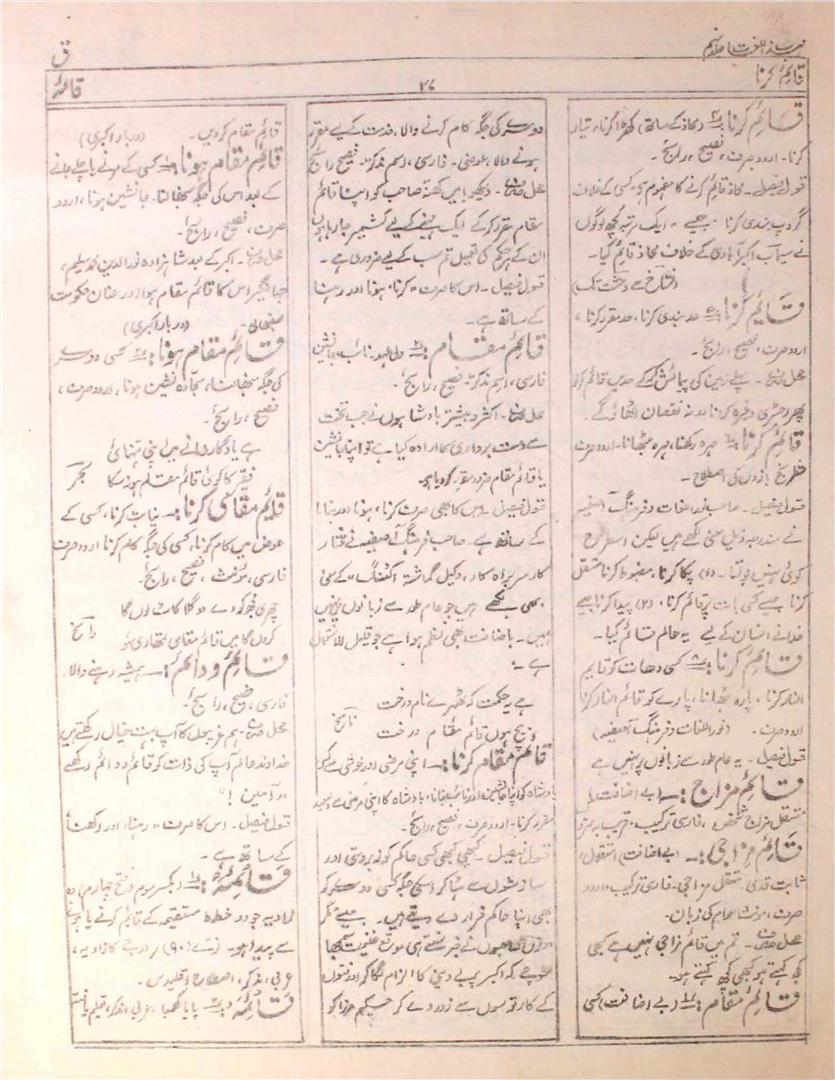 مہذب اللغات جلد نہم
ق
قائم کرنا
۲۷
قائمہ
قائم کرنا (محاذ کے ساتھ) کھڑا کرنا، تیار
کرنا۔ اردو صرف، فصیح، رائج۔
قول فیصل۔ محاذ قائم کرنے کا مفہوم ہے کسی کے خلاف
گروپ بندی کرنا۔ جیسے "ایک مرتبہ کچھ لوگوں
نے سیماب اکبر آبادی کے خلاف محاذ قائم کیا۔
قائم کرنا حد بندی کرنا، حد مقرر کرنا،
اردو صرف، فصیح، رائج۔
محل صرف۔ پہلے زمین کی پیمائش کرکے حدیں قائم کرلو
پھر رجسٹری وغیرہ کرانا ورنہ نقصان اٹھاؤ گے۔
قائم کرنا مہرہ رکھنا، مہرہ بٹھانا۔ اردو صرف
شطرنج بازوں کی اصطلاح۔
قول فیصل۔ صاحب نور اللغات و فرہنگ آصفیہ
نے مندرجہ ذیل معنی لکھے ہیں لیکن اسطرح
کوئی نہیں بولتا۔ (۱) پکا کرنا، مضبوط کرنا، مستقل
کرنا جیسے کسی بات پر قائم کرنا۔ (۲) پیدا کرنا جیسے
خدا نے انسان کے لیے یہ عالم قائم کیا۔
قائم کرنا کسی دھات کو قایم
النار کرنا، پارہ بٹھانا، پارے کو قائم النار کرنا
اردو صرف۔ (نور اللغات و فرہنگ آصفیہ)
قول فیصل۔ یہ عام طور سے زبانوں پر نہیں ہے
قائم مزاج :۔ (بے اضافت)
مستقل مزاج شخص، فارسی ترکیب،
قائم مزاجی :۔ (بے اضافت) استقلال،
ثابت قدمی، مستقل مزاجی۔ فارسی ترکیب، اردو
صرف، مونث، عوام کی زبان۔
محل صرف۔ تم میں قائم مزاجی نہیں ہے کبھی
کچھ کہتے ہو کبھی کچھ کہتے ہو۔
قائم مقام (بے اضافت) کسی
دوسرے کی جگہ کام کرنے والا، خدمت کے لیے مقرر
ہونے والا، عوضی۔ فارسی، اسم مذکر۔ فصیح رائج
محل صرف۔ دیکھو میں کھنہ صاحب کو اپنا قائم
مقام مقرر کرکے ایک مہینے کے لیے کشمیر جا رہا ہوں
ان کے ہر حکم کی تعمیل تم سب کے لیے ضروری ہے۔
قول فیصل۔ اس کا صرف "کرنا، ہونا اور رہنا
کے ساتھ ہے۔
قائم مقام :۔ ولی عہد، نائب، جانشین
فارسی، اسم مذکر۔ فصیح، رائج۔
محل صرف۔ اکثر و بیشتر بادشاہوں نے جب تخت
سے دست برداری کا ارادہ کیا ہے تو اپنا جانشین
یا قائم مقام ضرور مقرر کردیا ہے۔
قول فیصل۔ اس کا بھی صرف کرنا، ہونا اور بنانا
کے ساتھ ہے۔ صاحب فرہنگ آصفیہ نے مختار
کار، سربراہ کار، وکیل، گماشتہ، اکٹنگ" کے معنی
بھی لکھے ہیں جو عام طور سے زبانوں پر نہیں
ہیں۔ باضافت بھی نظم ہوا ہے جو قلیل الاستعمال
ہے۔
ہے یہ حکمت کہ ٹھہرے نام درخت
بیج ہوں قائم مقام درخت
قائم مقام کرنا :۔ اپنی مرضی اور خوشی سے کسی
بادشاہ کو اپنا جانشین اور نائب بنانا، بادشاہ کا اپنی مرضی سے ولیعہد
مقرر کرنا۔ اردو صرف، فصیح، رائج۔
قول فیصل۔ کبھی کبھی کسی حاکم کو زبردستی اور
سازشوں سے ہٹا کر اسکی جگہ کسی دوسرے کو
بھی اپنا حاکم قرار دے دیتے ہیں۔ جیسے مگر
دونوں صاحبوں نے خبر سنتے ہی موقع غنیمت سمجھا
کہ اکبر پر بے دینی کا الزام لگا کر اور فتووں
کے کارتوسوں سے زور دے کر حکیم مرزا کو
قائم مقام کردیں۔ (دربار اکبری)
قائم مقام ہونا کسی کے مرنے یا چلے جانے
کے بعد اس کی جگہ سنبھالنا۔ جانشین ہونا، اردو
صرف، فصیح، رائج۔
محل صرف۔ اکبر کے بعد شاہزادہ نور الدین محمد سلیم،
جہانگیر اس کا قائم مقام ہوا اور عنان حکومت
سنبھالی (دربار اکبری)
قائم مقام ہونا :۔ کسی دوسرے
کی جگہ سنبھالنا، سجادہ نشین ہونا، اردو صرف،
فصیح، رائج۔
فقیر کا کوئی قائم مقام ہو نہ سکا
قائم مقامی کرنا :۔ نیابت کرنا، کسی کے
عوض میں کام کرنا، کسی کی جگہ کام کرنا اردو صرف
فارسی، مونث، فصیح، رائج۔
چھری مجھکو دے دو گلا کاٹ لوں گا
کروں گا میں قائم مقامی تمھاری
قائم و دائم :۔ ہمیشہ رہنے والا۔
فارسی، فصیح، رائج۔
محل صرف۔ ہم غریبوں کا آپ بہت خیال رکھتے ہیں
خداوند عالم آپ کی ذات کو قائم و دائم رکھے
(آمین)"
قول فیصل۔ اس کا صرف "رہنا، اور رکھنا
کے ساتھ ہے۔
قائمہ (بکسر سوم و فتح چہارم) وہ
زاویہ جو دو خطوط مستقیمہ کے قایم کرنے یا ہونے
سے پیدا ہو۔ نوے (۹۰) درجے کا زاویہ،
عربی، مذکر، اصطلاح اقلیدس۔
قائمہ پایا، کھمبا، عربی، مذکر،